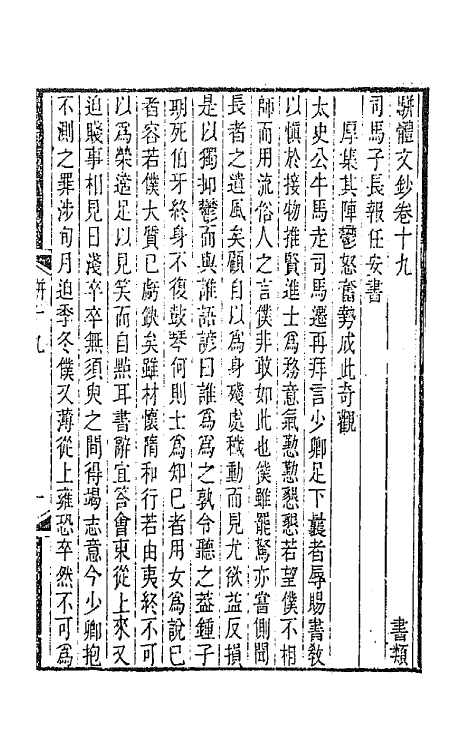 駢體文鈔卷十九　書類
司馬子長報任安書
厚集其陣鬱怒奮勢成此奇觀
太史公牛馬走司馬遷再拜言少卿足下曩者辱賜書教
以愼於接物推賢進士爲務意氣懃懃懇懇若望僕不相
師而用流俗人之言僕非敢如此也僕雖罷駑亦嘗側聞
長者之遺風矣顧自以爲身殘處穢動而見尤欲益反損
是以獨抑鬱而與誰語諺曰誰爲爲之孰令聽之葢鍾子
期死伯牙終身不復鼓琴何則士爲知己者用女爲說己
者容若僕大質已虧缺矣雖材懷隋和行若由夷終不可
以爲榮適足以見笑而自點耳書辭宜答會東從上來又
迫賤事相見日淺卒卒無須臾之間得竭志意今少卿抱
不測之罪涉旬月迫季冬僕又薄從上雍恐卒然不可爲
駢十九
一